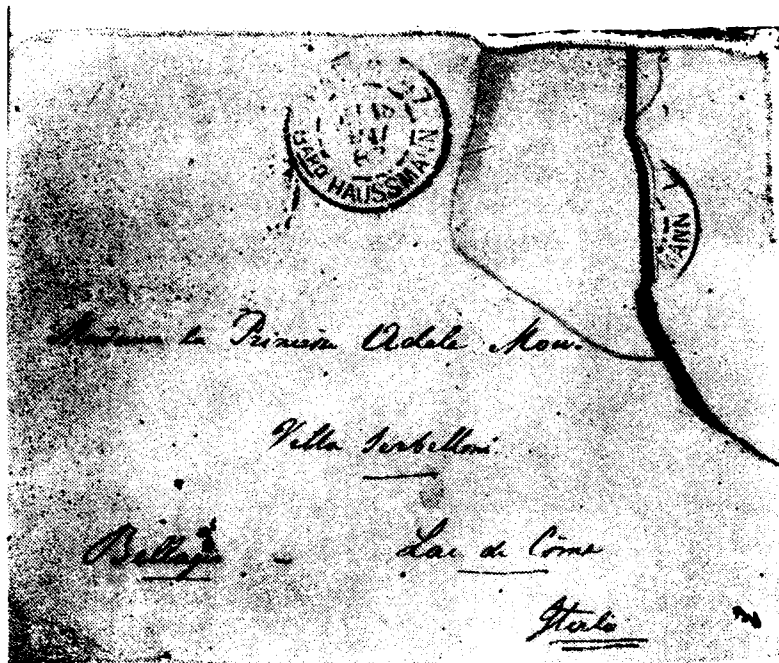 BARD HAUSSMANN
MANN
Madame la Princesse Adele Mou-
Villa Serbelloni
Bellagio - Lac de Côme